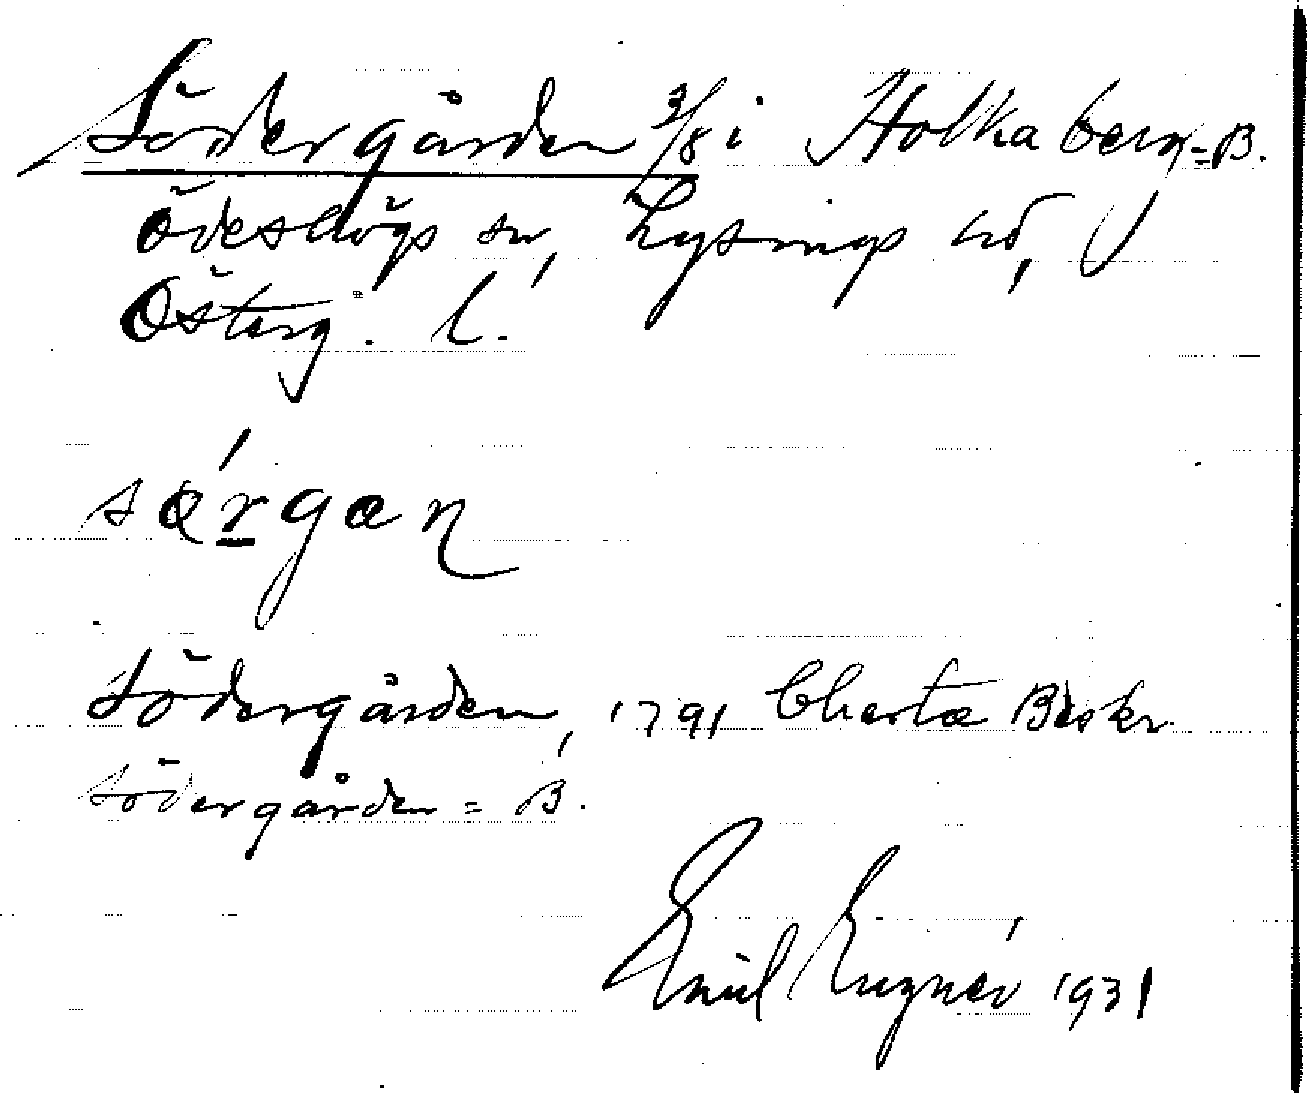 Södergården 3/8 i Holkaberg=B.
Ödeshögs sn, Lysings hd,
Österg. l.
sǿrgan
Södergården, 1791 Charta Beskr.
Södergården = B.
Emil 1931